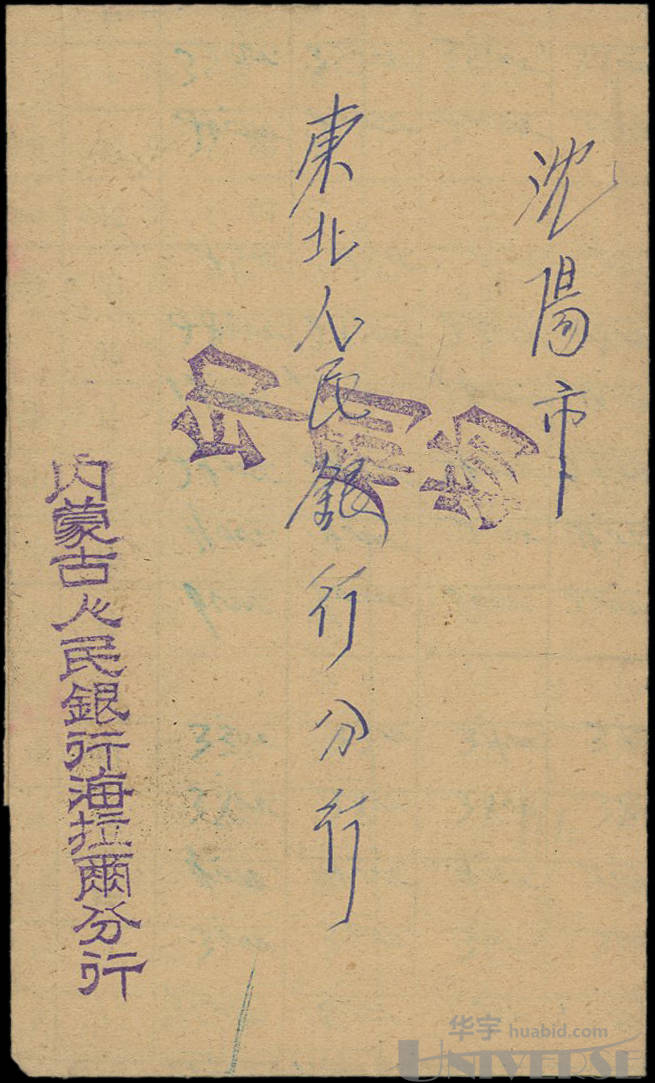 沈陽市
東北人民銀行分行
内蒙古人民銀行海拉爾分行
华宇 huabid.com
UNIVERSE